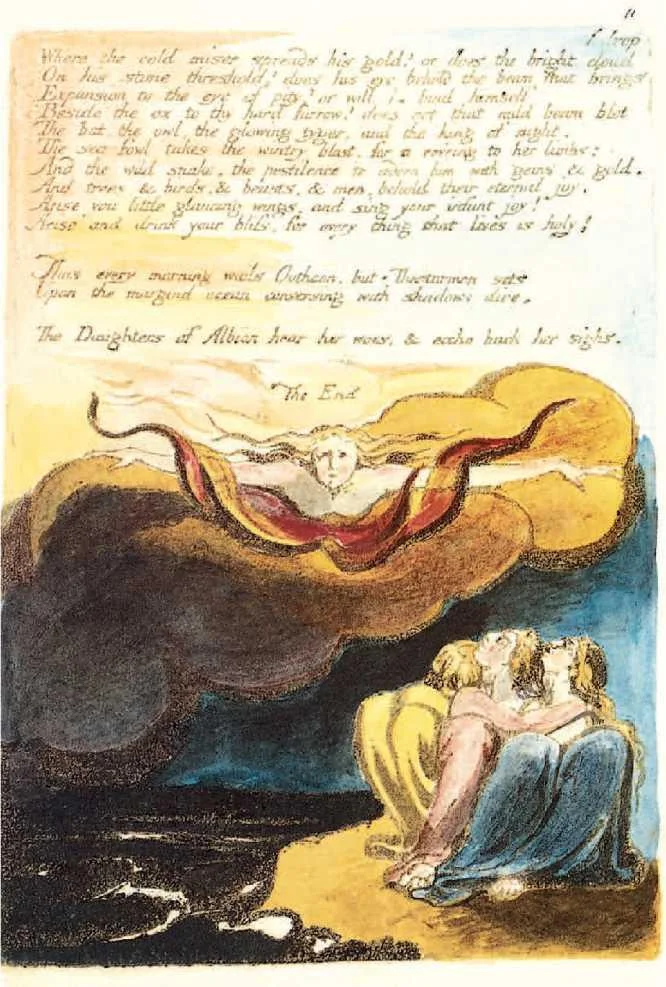 11
f. drop
Where the cold miser spreads his gold? or does the bright cloud
On his stone threshold? does his eye behold the beam that brings
Expansion to the eye of pity? or will bind himself
Beside the ox to thy hard furrow? does not that mild beam blot
The bat, the owl, the glowing tyger, and the king of night.
The sea fowl takes the wintry blast, for a covring to her limbs:
And the wild snake, the pestilence to adorn him with gems & gold.
And trees & birds, & beasts, & men, behold their eternal joy.
Arise you little glancing wings, and sing your infant joy!
Arise and drink your bliss, for every thing that lives is holy!
Thus every morning wails Oothoon, but Theotormon sits
Upon the margind ocean conversing with shadows dire.
The Daughters of Albion hear her woes, & eccho back her sighs.
The End